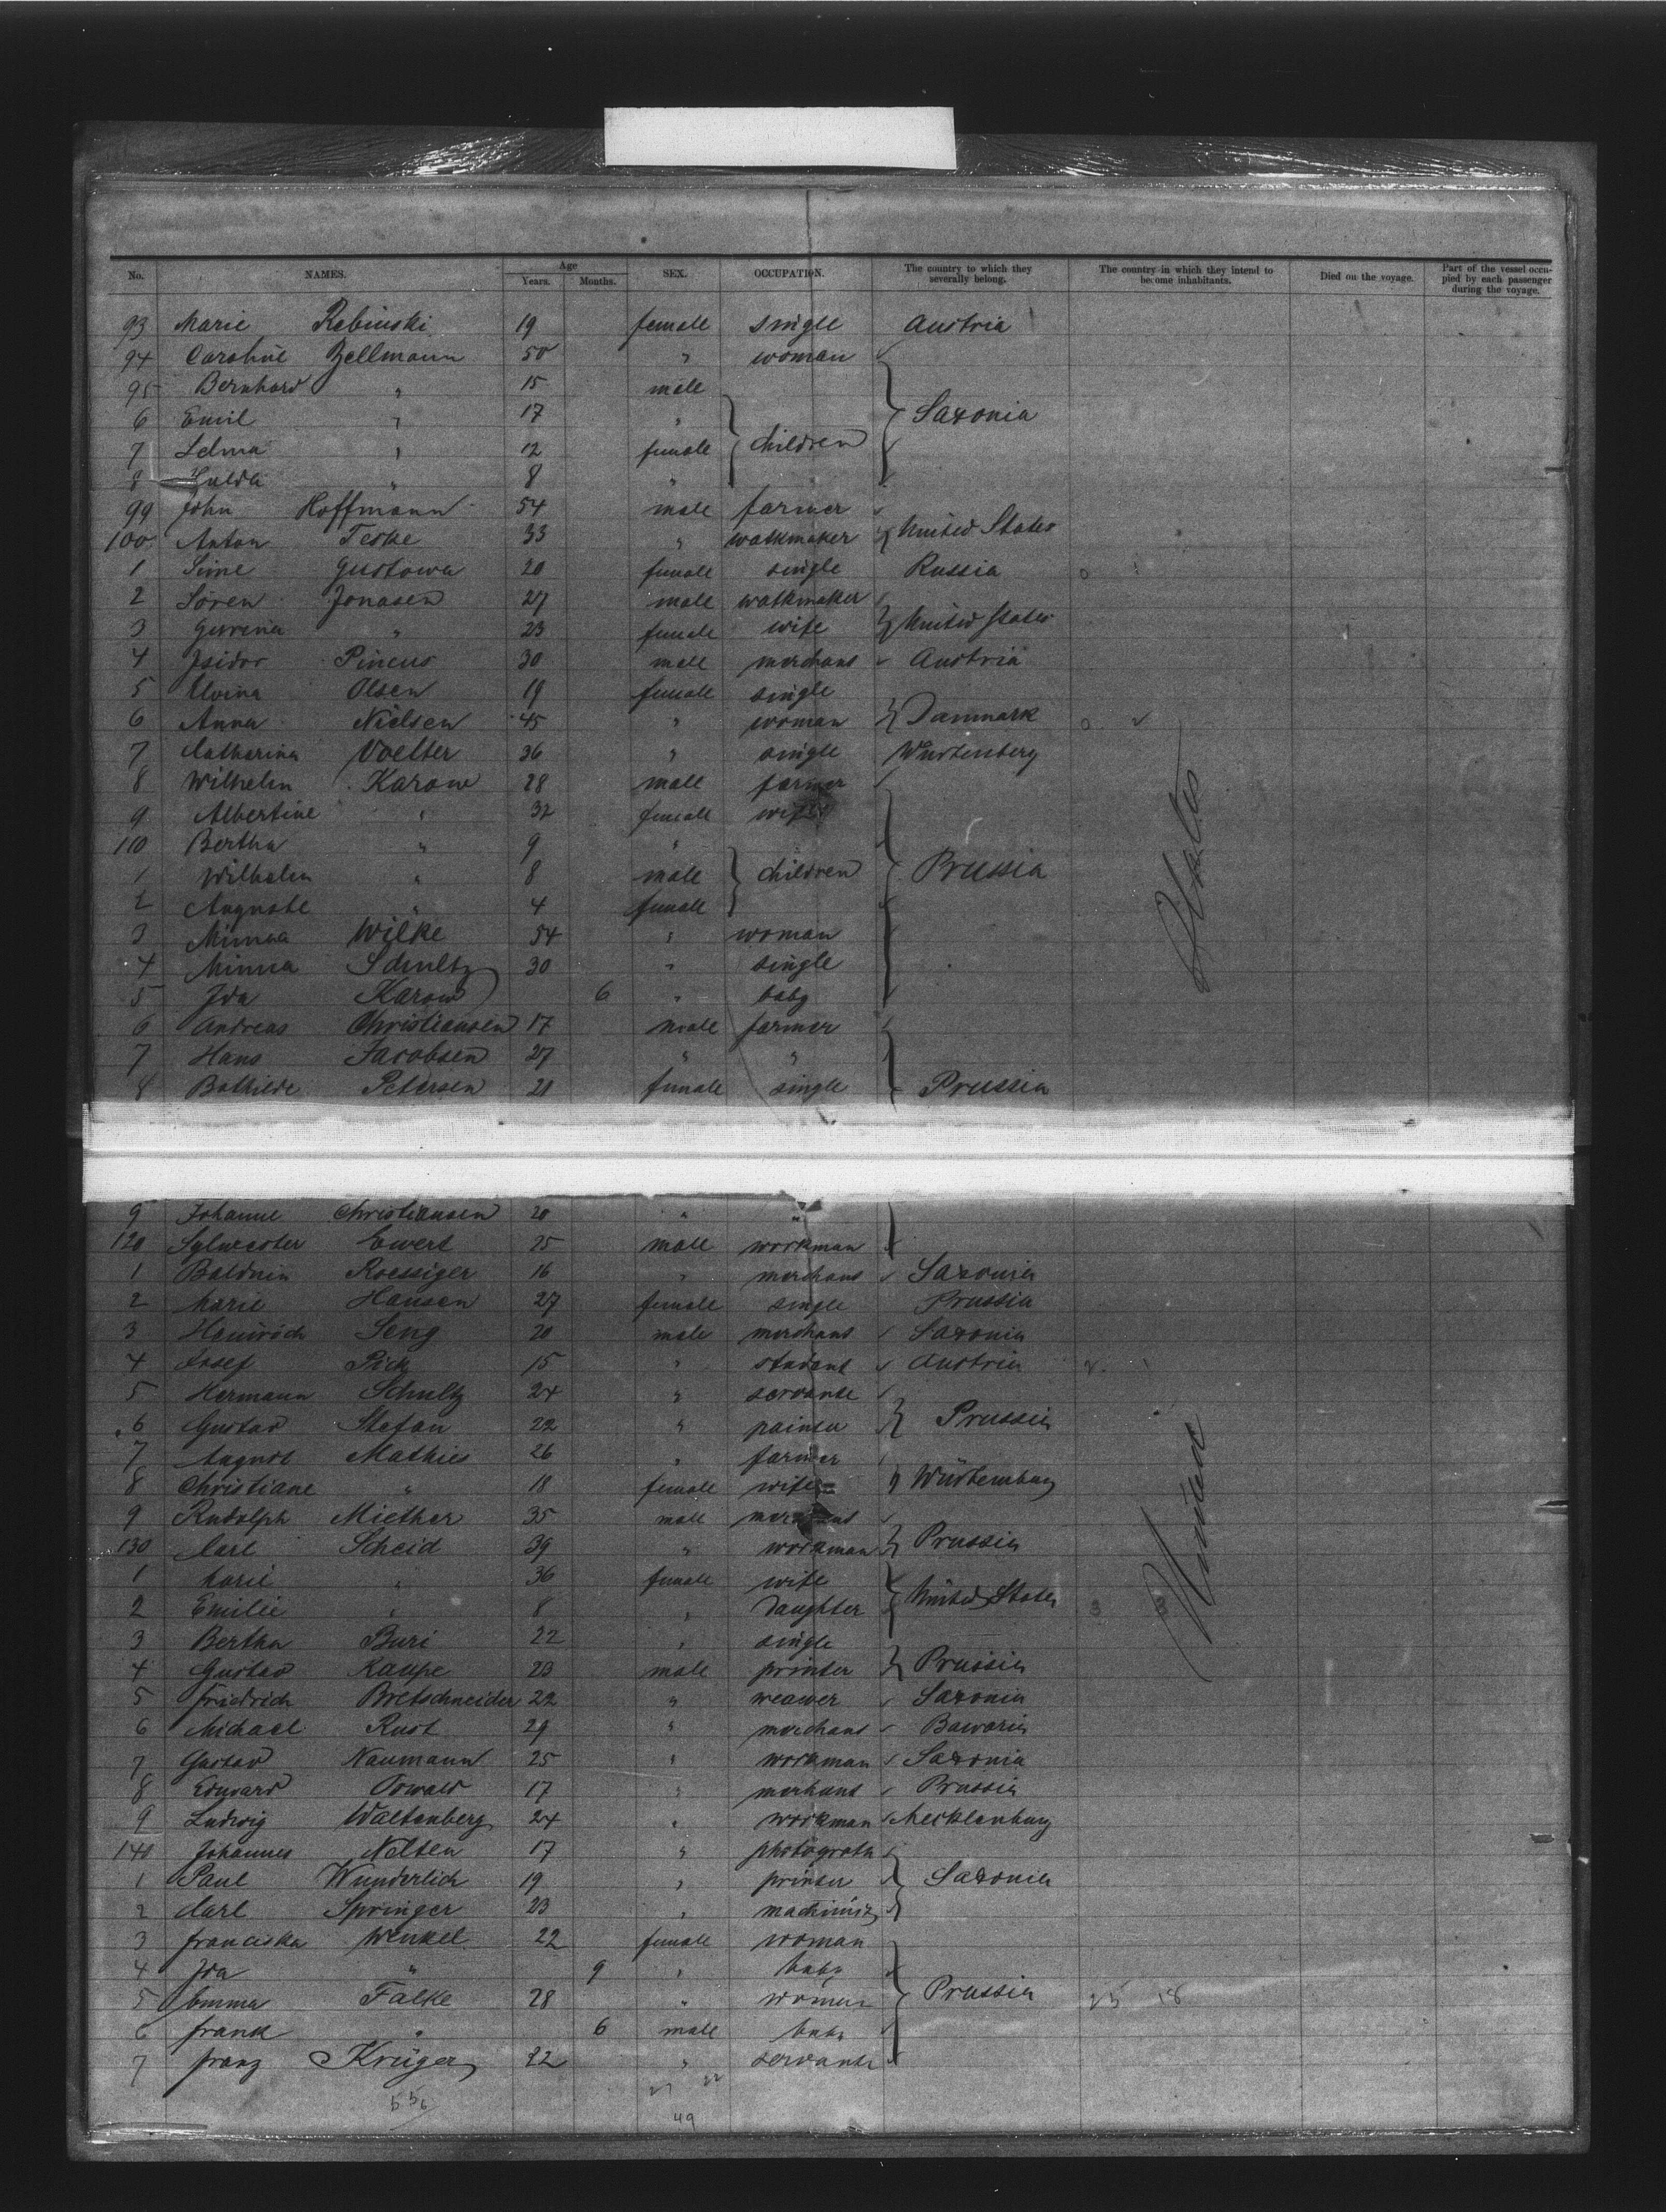 No. NAMES. Age Years. Months. SEX. OCCUPATION. The country to which they severally belong. The country in which they intend to become inhabitants. Died on the voyage. Part of the vessel occupied by each passenger during the voyage.
93 Marie Rebinski 19 female single Austria
94 Caroline Bellmann 50 " woman
95 Bernhard " 15 male
6 Emil " 17 " Saxonia
7 Selma " 12 female children
8 Hulda " 8 "
99 John Hoffmann 54 male farmer
100 Anton Teske 33 " watkmaker United States
1 Sime Gustowa 20 female single Russia
2 Sören Jonasen 27 male watkmaker
3 " 23 female wife United States
4 Isidor Pincus 30 male merchant Austria
5 Elvina Olsen 19 female single
6 Anna Nielsen 45 " woman Danmark
7 Catharina Voelter 36 " single Wurtenberg
8 Wilhelm Karow 28 male farmer
9 Albertine " 32 female wife
110 Bertha " 9 "
1 Wilhelm " 8 male children Prussia
2 Auguste " 4 female
3 Minna Wilke 54 " woman
4 Minna Schultz 30 " single
5 Ida Karow 6 " baby
6 Andreas Christiansen 17 male farmer
7 Hans Jacobsen 27 " "
8 Bothilde Petersen 21 female single Prussia
9 Johanne Christiansen 20 " "
120 Sylwester Ewert 25 male workman
1 Baldwin Roessiger 16 " merchant Saxonia
2 Marie Hansen 27 female single Prussia
3 Heinrich Seng 20 male merchant Saxonia
4 Josef Pick 15 " student Austria
5 Hermann Schultz 24 " servante
6 Gustav Stefan 22 " painter Prussia
7 August Mathies 26 " farmer
8 Christiane " 18 female wife Würtemburg
9 Rudolph Miether 35 male merchant
130 Carl Scheid 39 " workman Prussia
1 Marie " 36 female wife
2 Emilie " 8 " daughter United States
3 Bertha Buri 22 " single
4 Gustav Kaupe 23 male printer Prussia
5 Friedrich Bretschneider 22 " weawer Saxonia
6 Michael Rust 29 " merchant Bawaria
7 Gustav Naumann 25 " workman Saxonia
8 Edward Oswald 17 " merchant Prussia
9 Ludwig Waltenberg 24 " workman Mecklenburg
140 Johannes Nelten 17 " photograth
1 Paul Wunderlich 19 " printer Saxonia
2 Carl Springer 23 " machinist
3 Franciska Winkel 22 female woman
4 Ida " 9 " baby
5 Emma Falke 28 " woman Prussia
6 Frank " 6 male baby
7 Franz Krüger 22 " servante
United States
27 22
556
49